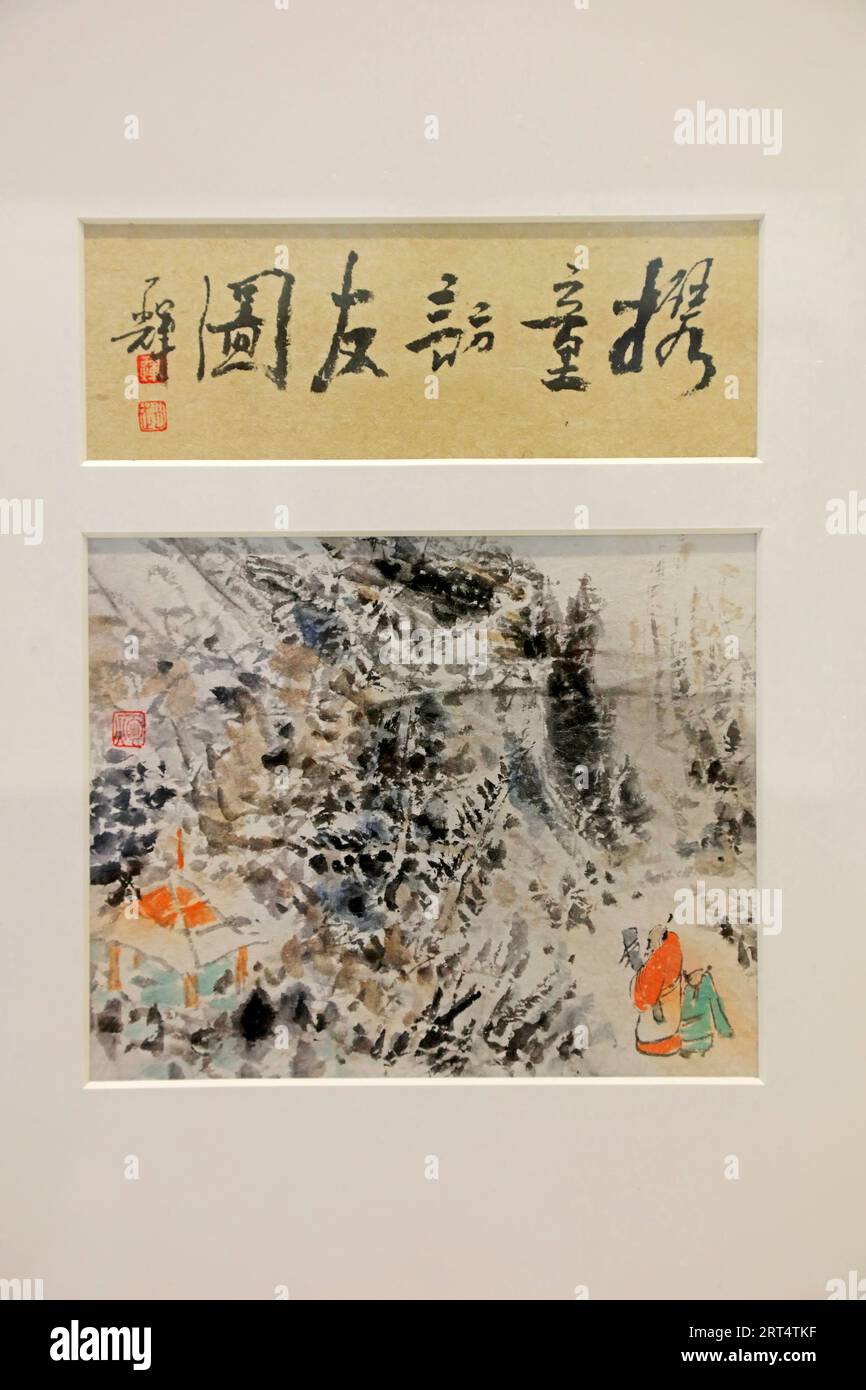 攜童訪友圖
一輝
alamy
Image ID: 2RT4TKF
www.alamy.com